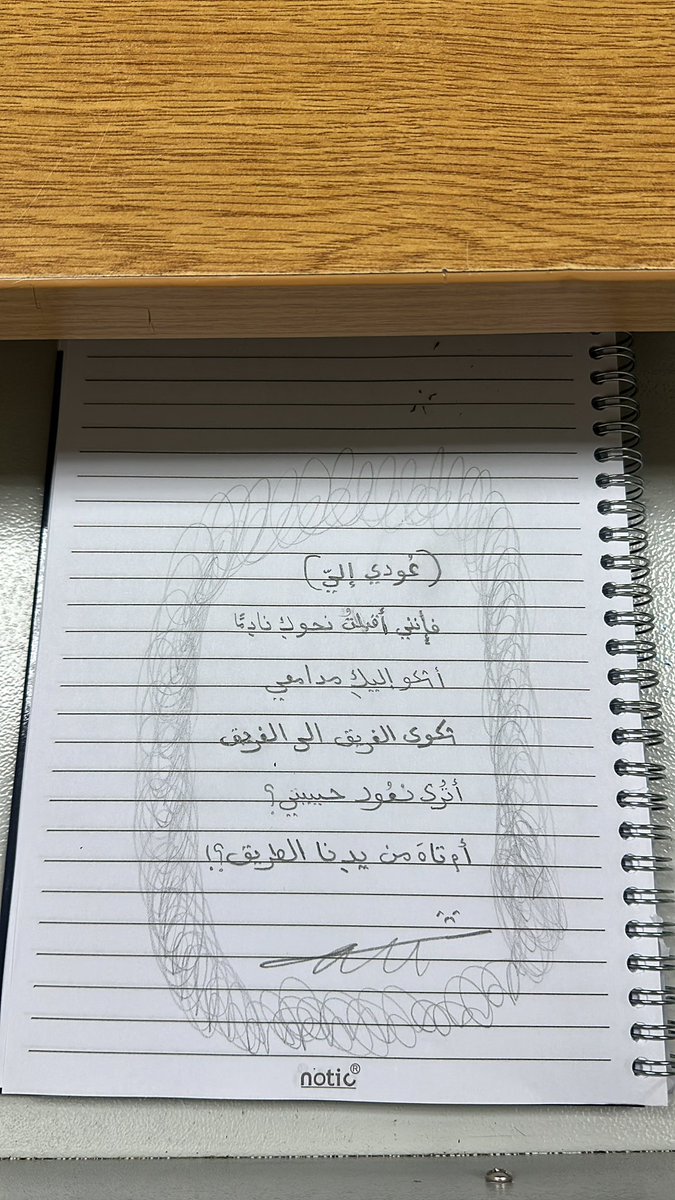 (عُودي إليّ)
فإنني أقبلتُ نحوكِ نادِمًا
أشكو اليكِ مدامعي
شكوى الغريق الى الغريق
أتُرى نعُود حبيبتي؟
أم تاهَ من يدِنا الطريق؟!
notic®